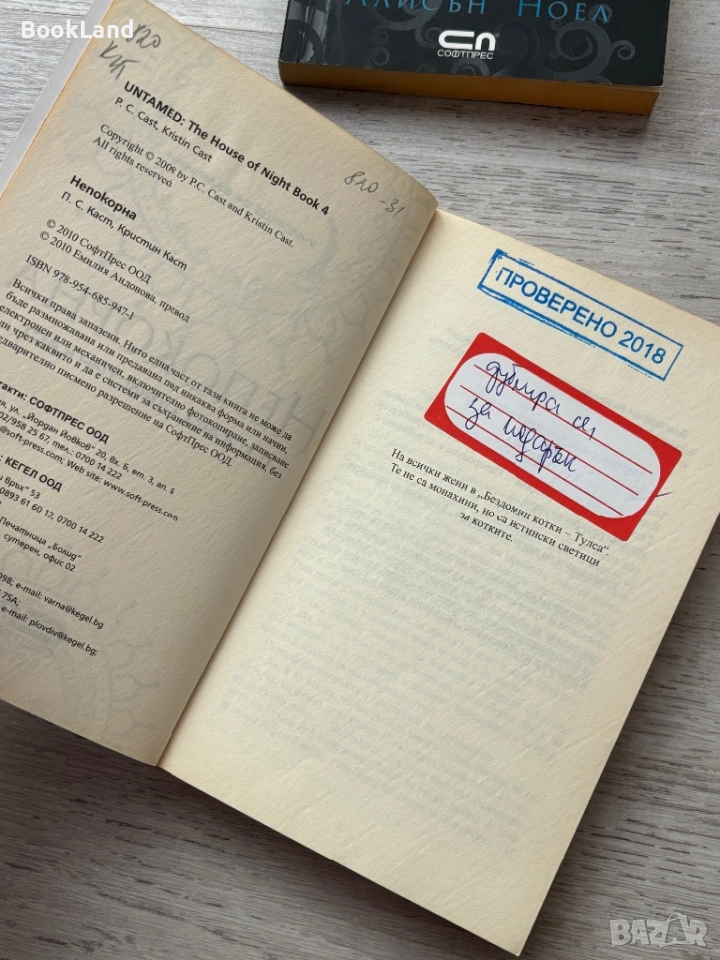 BookLand
АЛИСЪН НОЕЛ
СОФТПРЕС
UNTAMED: The House of Night Book 4
P. C. Cast, Kristin Cast
Copyright © 2008 by P.C. Cast and Kristin Cast.
All rights reserved
820
-31
Непокорна
П. С. Каст, Кристин Каст
© 2010 СофтПрес ООД
© 2010 Емилия Андонова, превод
ISBN 978-954-685-947-1
Всички права запазени. Нито една част от тази книга не може да
бъде размножавана или предавана под никаква форма или начин,
електронен или механичен, включително фотокопиране, записване
ли чрез каквито и да е системи за съхранение на информация, без
едварително писмено разрешение на СофтПрес ООД
такти: СОФТПРЕС ООД
ия, ул. „Йордан Йовков" 20, вх. Б, ет. 3, ап. 6
02/958 25 67, тел.: 0700 14 222
@soft-press.com; Web site: www.soft-press.com
; КЕГЕЛ ООД
Връх" 53
0893 61 60 12, 0700 14 222
Печатница „Болид"
сутерен, офис 02
098; e-mail: varna@kegel.bg
175А;
e-mail: plovdiv@kegel.bg;
ПРОВЕРЕНО 2018
дублира се
за подарък
На всички жени в „Бездомни котки – Тулса".
Те не са монахини, но са истински светици
за котките.
BAZAR